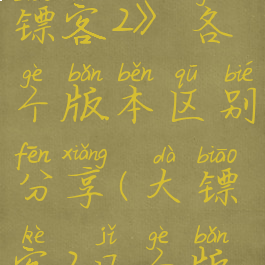 镖客2》各
gè bǎn běn qū bié
个版本区别
fēn xiǎng dà biāo
分享(大镖
kè jǐ gè bǎn